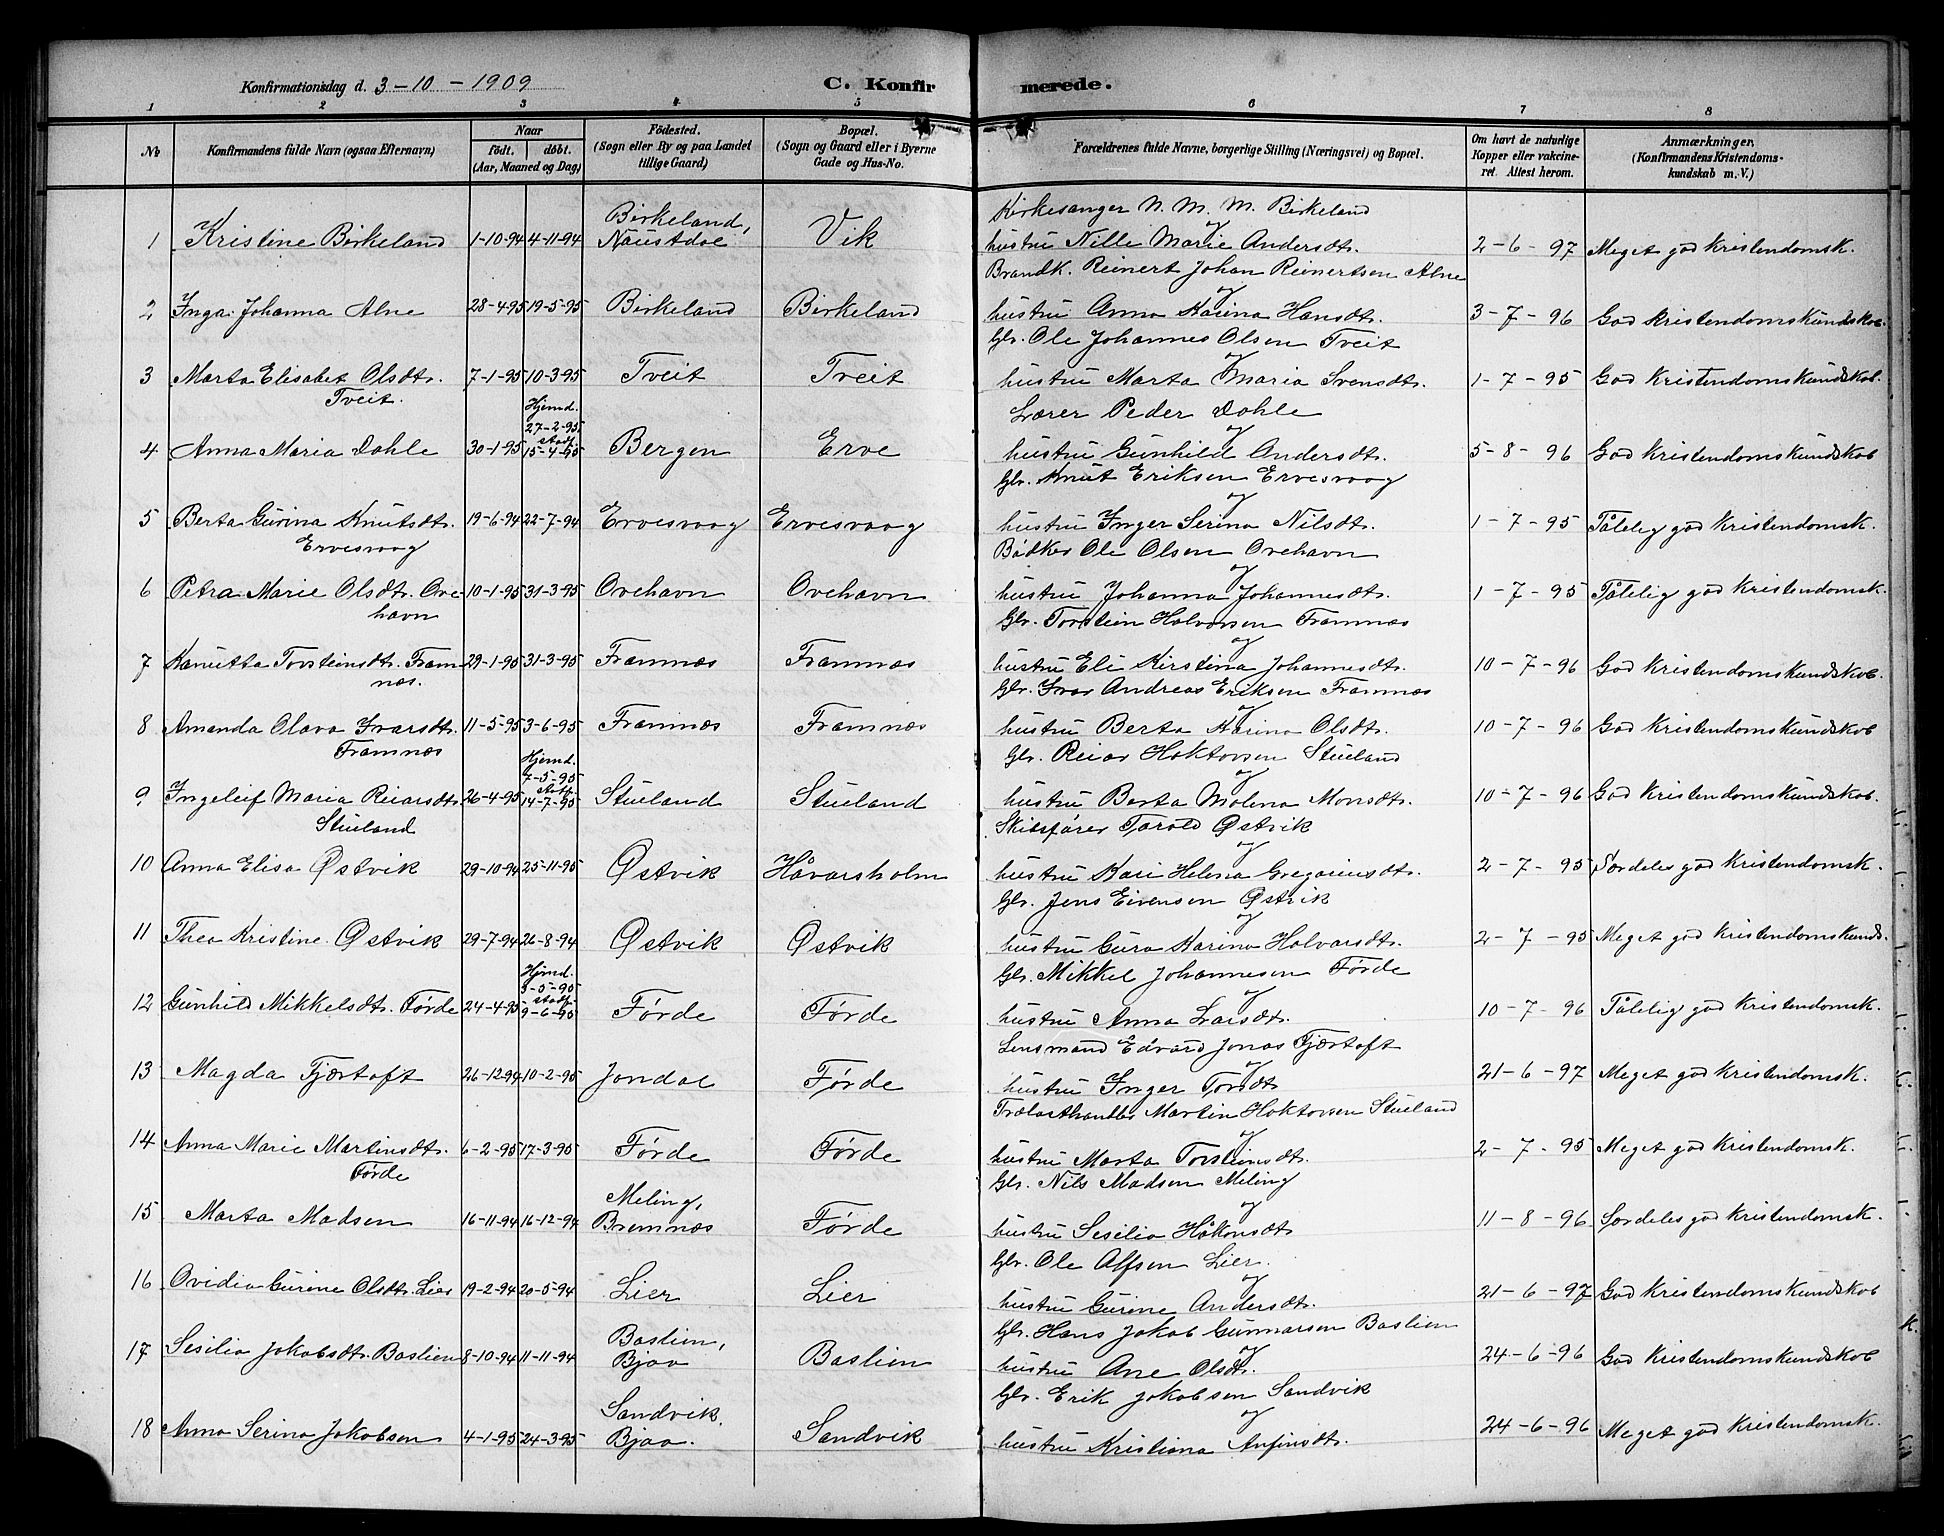 Konfirmationsdag d. 3-10-1909
C. Konfirmerede.
1 2 3 4 5 6 7 8
No
Konfirmandens fulde Navn (ogsaa Efternavn)
Naar
Födt. döbt.
(Aar, Maaned og Dag)
Födested.
(Sogn eller By og paa Landet
tillige Gaard)
Bopæl.
(Sogn og Gaard eller i Byerne
Gade og Hus-No.
Forældrenes fulde Navne, borgerlige Stilling (Næringsvei) og Bopæl.
Om havt de naturlige
Kopper eller vakcine-
ret. Attest herom.
Anmærkninger,
(Konfirmandens Kristendoms-
kundskab m. V.)
1 Kristine Birkeland 1-10-94 4-11-94 Birkeland, Naustdal Vik
Kirkesanger N. M. M. Birkeland
og
hustru Nille Marie Andersdtr. 2-6-97 Meget god Kristendomsk.
2 Inga Johanna Alne 28-4-95 19-5-95 Birkeland Birkeland
Brandk. Reinert Johan Reinertsen Alne
og
hustru Anna Karina Hansdtr. 3-7-96 God Kristendomskundskab.
3 Marta Elisabet Olsdtr. Tveit. 7-1-95 10-3-95 Tveit Tveit
Gbr. Ole Johannes Olsen Tveit
og
hustru Marta Maria Svensdtr. 1-7-95 God Kristendomskundskab.
4 Anna Maria Dahle 30-1-95 Hjemd. 27-2-95 stadf. 15-4-95 Bergen Erve
Lærer Peder Dahle
og
hustru Gunhild Andersdtr. 5-8-96 God Kristendomskundskab
5 Berta Gurina Knutsdtr. Ervesvaag 19-6-94 22-7-94 Ervesvaag Ervesvaag
Gbr. Knut Eriksen Ervesvaag
og
hustru Inger Serina Nilsdtr. 1-7-95 Tålelig god Kristendomsk.
6 Petra Marie Olsdtr. Ovehavn 10-1-95 31-3-95 Ovehavn Ovehavn
Bødker Ole Olsen Ovehavn
og
hustru Johanna Johannesdtr. 1-7-95 Tålelig god Kristendomsk.
7 Kanutta Torsteinsdtr. Framnæs. 29-1-95 31-3-95 Framnæs Framnæs
Gbr. Torstein Halvorsen Framnæs
og
hustru Eli Kirstina Johannesdtr. 10-7-96 God Kristendomskundskab.
8 Amanda Olava Ivarsdtr. Framnæs 11-5-95 3-6-95 Framnæs Framnæs
Gbr. Ivar Andreas Eriksen Framnæs
og
hustru Berta Karina Olsdtr. 10-7-96 God Kristendomskundskab
9 Ingeleif Maria Reiarsdtr. Stueland 26-4-95 Hjemd. 7-5-95 stadf. 14-7-95 Stueland Stueland
Gbr. Reiar Haktorsen Stueland
og
hustru Berta Malena Monsdtr. 10-7-96 God Kristendomskundskab.
10 Anna Elisa Østvik 29-10-94 25-11-95 Østvik Håvarsholm
Skibsfører Tarald Østvik
og
hustru Kari Helena Gregoriusdtr. 2-7-95 Særdeles god Kristendomsk.
11 Thea Kristine Østvik 29-7-94 26-8-94 Østvik Østvik
Gbr. Jens Eivensen Østvik
og
hustru Guro Karina Halvarsdtr. 2-7-95 Meget god Kristendomskunds.
12 Gunhild Mikkelsdtr. Førde 24-4-95 Hjemd. 3-5-95 stadf. 9-6-95 Førde Førde
Gbr. Mikkel Johannesen Førde
og
hustru Anna Larsdtr. 10-7-96 Tålelig god Kristendomsk.
13 Magda Fjærtoft 26-12-94 10-2-95 Jondal Førde
Lensmand Edvard Jonas Fjærtoft
og
hustru Inger Tordtr 21-6-97 Meget god Kristendomsk.
14 Anna Marie Martinsdtr. Førde 6-2-95 17-3-95 Førde Førde
Trælasthandler Martin Haktorsen Stueland
og
hustru Marta Torsteinsdtr. 2-7-95 Meget god Kristendomsk.
15 Marta Madsen 16-11-94 16-12-94 Meling, Bremnæs Førde
Gbr. Nils Madsen Meling
og
hustru Sesilia Håkonsdtr 11-8-96 Særdeles god Kristendomsk.
16 Ovidia Gurine Olsdtr. Lier 19-2-94 20-5-94 Lier Lier
Gbr. Ole Alfsen Lier.
og
hustru Gurine Andersdtr. 21-6-97 God Kristendomskundskab
17 Sesilia Jakobsdtr. Bastien 8-10-94 11-11-94 Bastien, Bjoa Bastien
Gbr. Hans Jakob Gunnarsen Bastien
og
hustru Ane Olsdtr. 24-6-96 God Kristendomskundskab
18 Anna Serina Jakobsen 4-1-95 24-3-95 Sandvik. Bjoa. Sandvik
Gbr. Erik Jakobsen Sandvik
og
hustru Kristiana Anfinsdtr. 24-6-96 Meget god Kristendomsk.